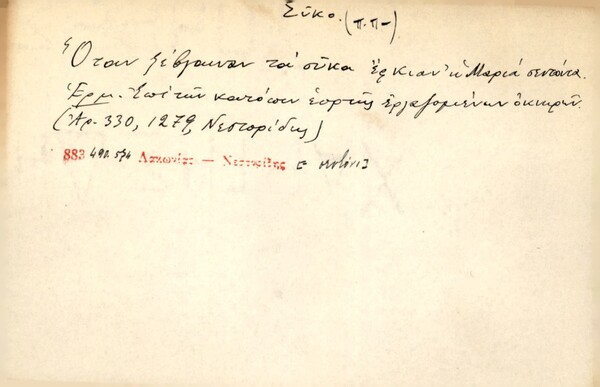 Σῦκο. (π.π-)
Ὅταν ξέβγαιναν τὰ σῦκα ἔρκιαν' ἡ Μαριά σεντόνια.
Ἑρμ. Ἐπὶ τῶν κατόπιν ἑορτῆς ἐργαζομένων ὀκνηρῶν.
(Ἀρ. 330, 1279, Νεστορίδης)
883 490.574 Λακωνίας — Νεστορίδης